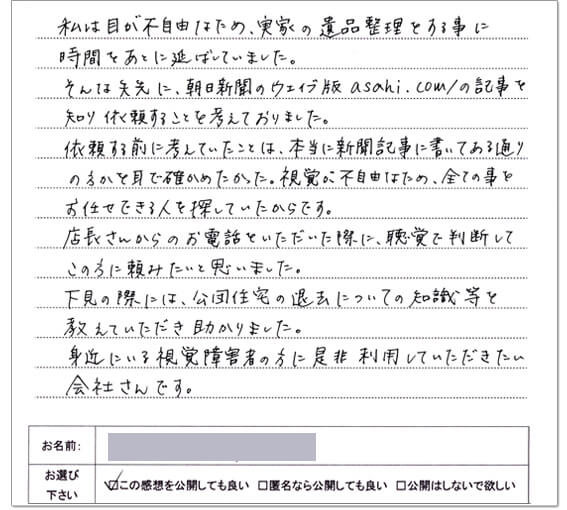 私は目が不自由なため、実家の遺品整理をする事に
時間をあとに延ばしていました。
そんな矢先に、朝日新聞のウェイブ版 asahi.com/の記事を
知り依頼することを考えておりました。
依頼する前に考えていたことは、本当に新聞記事に書いてある通り
の方かを目で確かめたかった。視覚が不自由なため、全ての事を
お任せできる人を探していたからです。
店長さんからのお電話をいただいた際に、聴覚で判断して
この方に頼みたいと思いました。
下見の際には、公団住宅の退去についての知識等を
教えていただき助かりました。
身近にいる視覚障害者の方に是非利用していただきたい
会社さんです。
お名前:
お選び下さい ☑この感想を公開しても良い □匿名なら公開しても良い □公開はしないで欲しい